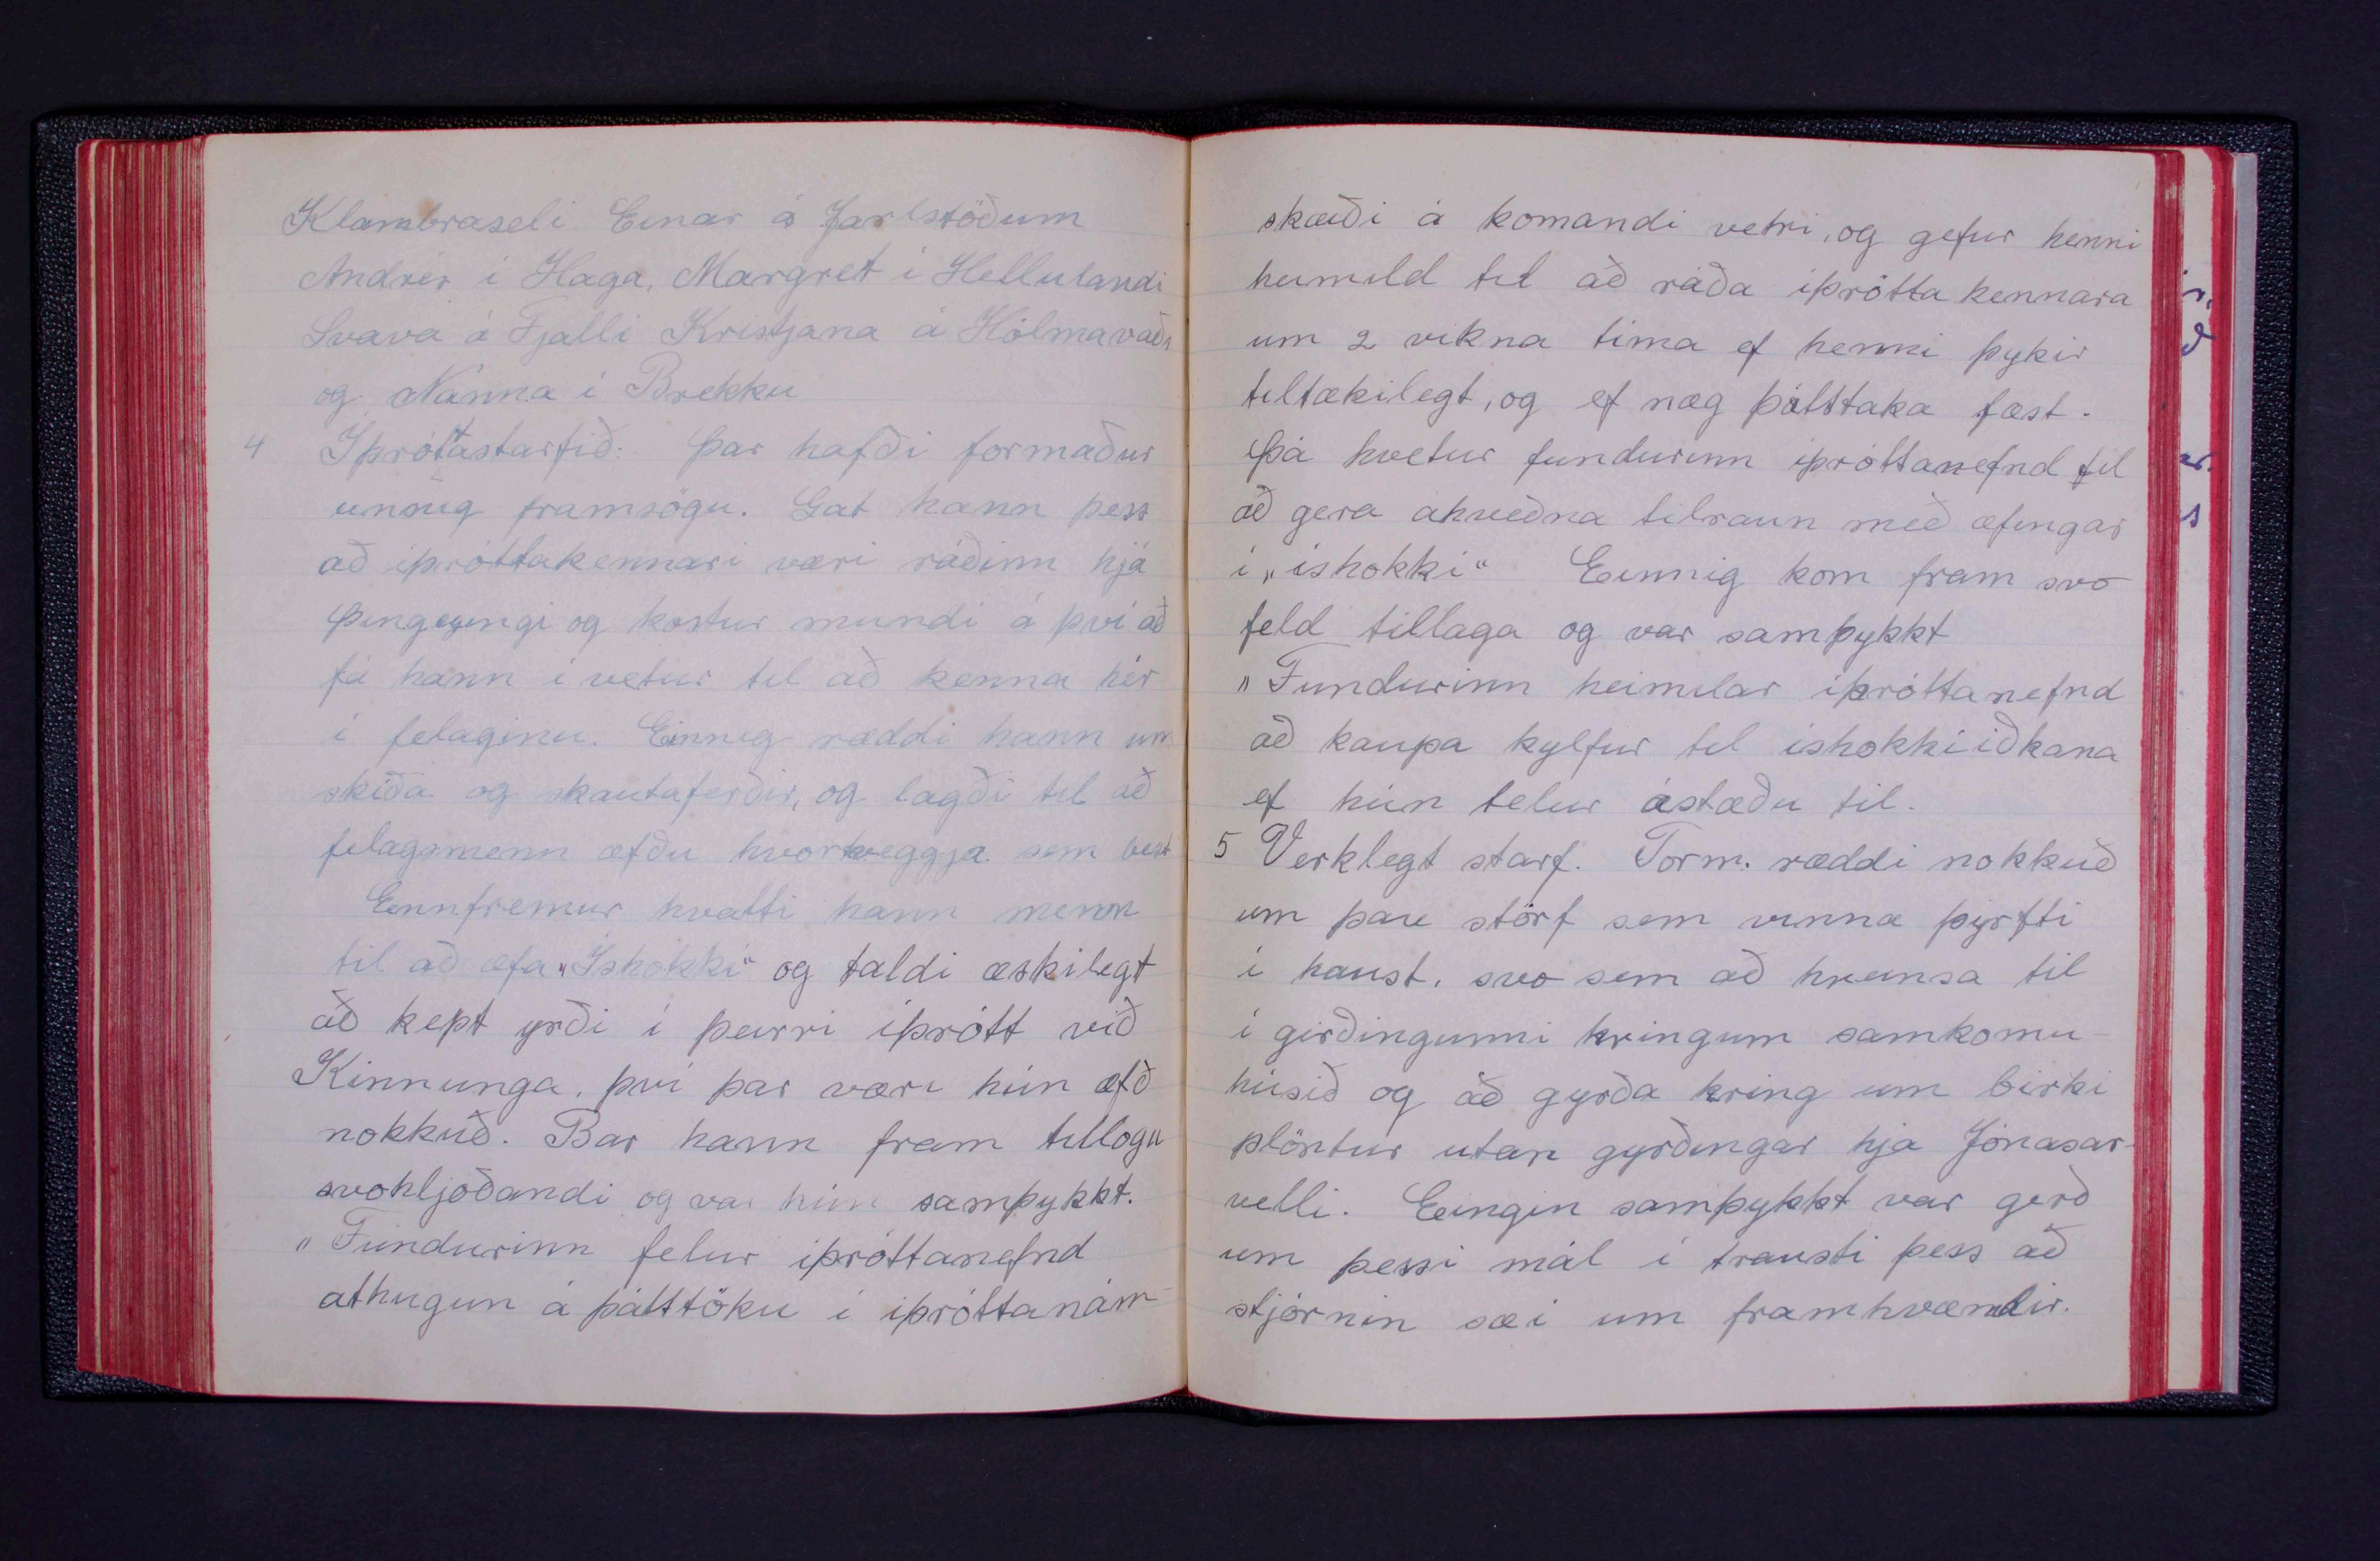 Klambraseli. Einar á Jarlstöðum
Andrés í Haga, Margret í Hellulandi
Svava á Fjalli Kristjana á Hólmavaði
og Nanna í Brekku
4 Íþróttastarfið: Þar hafði formaður
einnig framsögu. Gat hann þess
að íþróttakennari væri ráðinn hjá
Þingeyingi og kostur mundi á því að
fá hann í vetur til að kenna hér
í felaginu. Einnig ræddi hann um
skíða og skautaferðir, og lagði til að
felagsmenn æfðu hvortveggja sem best
Ennfremur hvatti hann menn
til að æfa „Íshokki" og taldi æskilegt
að kept yrði í þeirri íþrótt við
Kinnunga, því þar væri hún æfð
nokkuð. Bar hann fram tillögu
svohljóðandi og var hún samþykkt.
„Fundurinn felur íþróttanefnd
athugun á þátttöku í íþróttanám-
skeiði á komandi vetri, og gefur henni
heimild til að ráða íþrótta kennara
um 2 vikna tíma ef henni þykir
tiltækilegt, og ef næg þátttaka fæst.
Þá hvetur fundurinn íþróttanefnd til
að gera ákveðna tilraun með æfingar
í „íshokki" Einnig kom fram svo
feld tillaga og var samþykkt
„Fundurinn heimilar íþróttanefnd
að kaupa kylfur til íshokkiiðkana
ef hún telur ástæðu til.
5 Verklegt starf. Form. ræddi nokkuð
um þau störf sem vinna þyrfti
í haust, svo sem að hreinsa til
í girðingunni kringum samkomu-
húsið og að gyrða kring um birki
plöntur utan gyrðingar hjá Jónasar-
velli. Eingin samþykkt var gerð
um þessi mál í trausti þess að
stjórnin sæi um framhvæmdir.